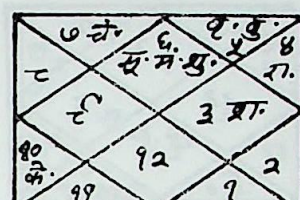 ७ चं.
६
सू. मं. शु.
बृ. बु.
५
४
रा.
८
९
३ श.
१०
के.
१२
२
११
१